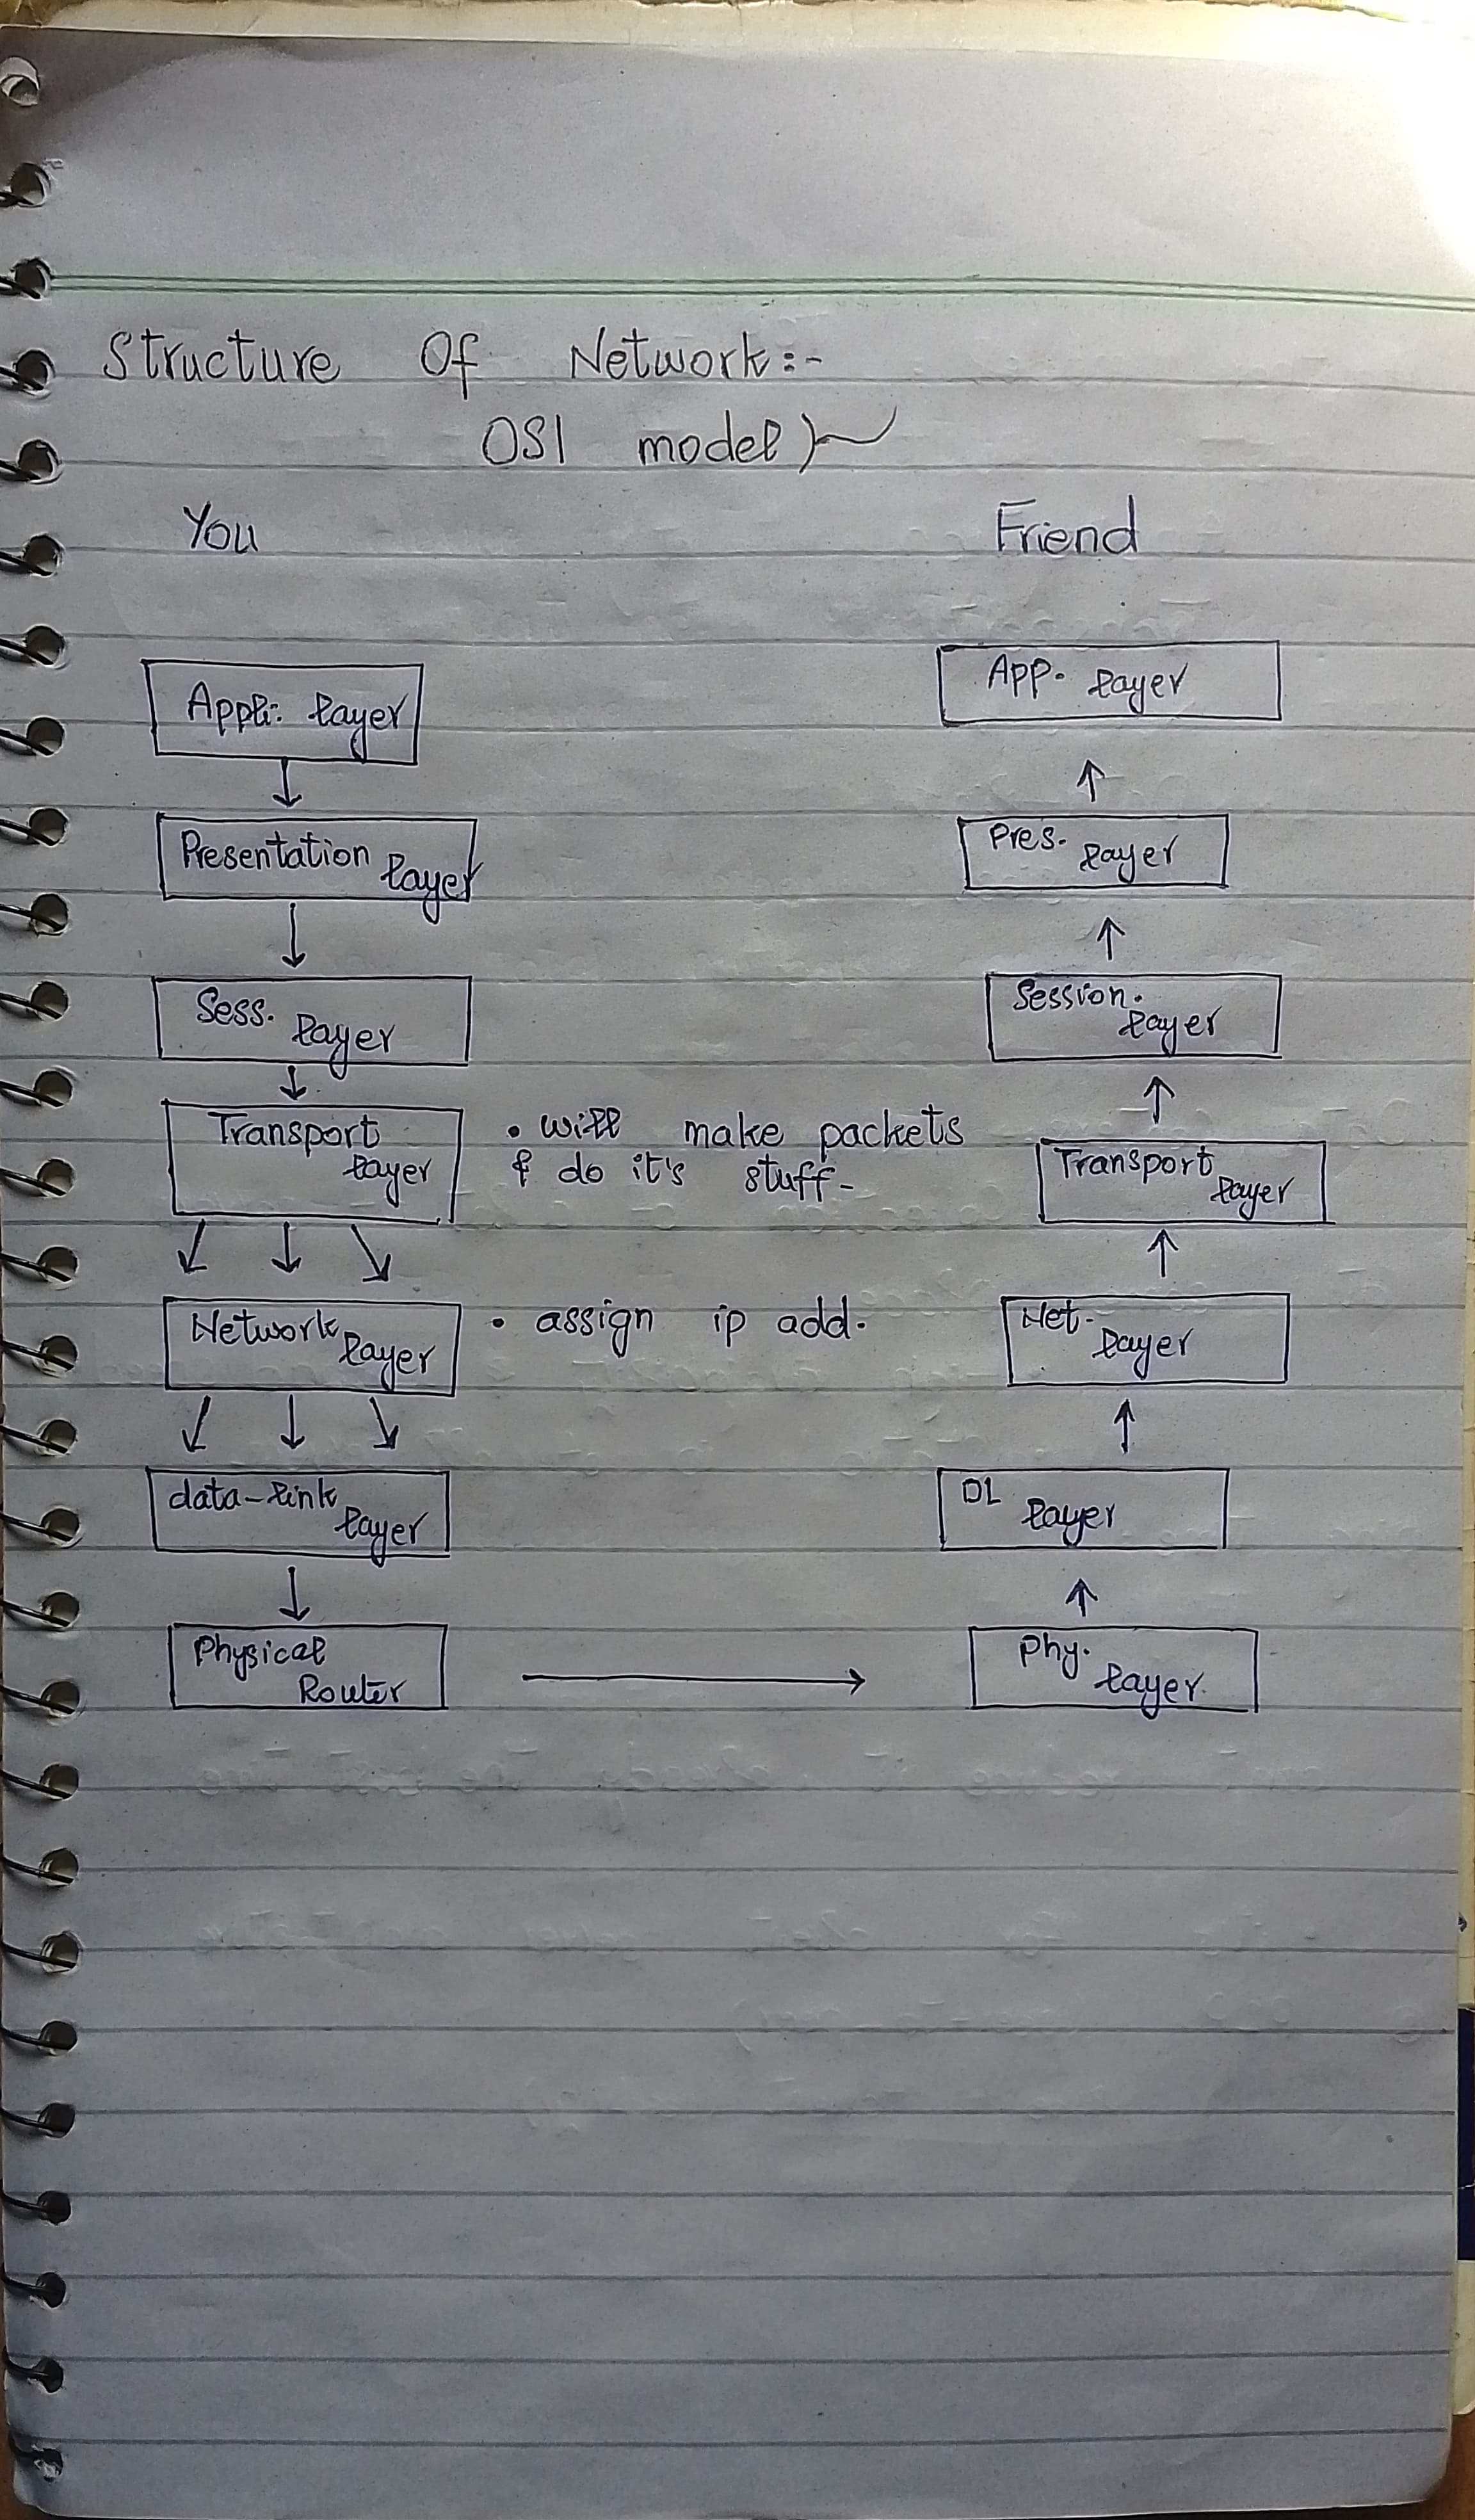 Structure Of Network:-
OSI model
You
Friend
Appli. layer
Presentation
layer
Sess. layer
Transport
layer
• will make packets
& do it's stuff-
Network
layer
• assign ip add.
data-link
layer
Physical
Router
App. layer
Pres. layer
Session.
layer
Transport
layer
Net.
layer
DL layer
Phy. layer